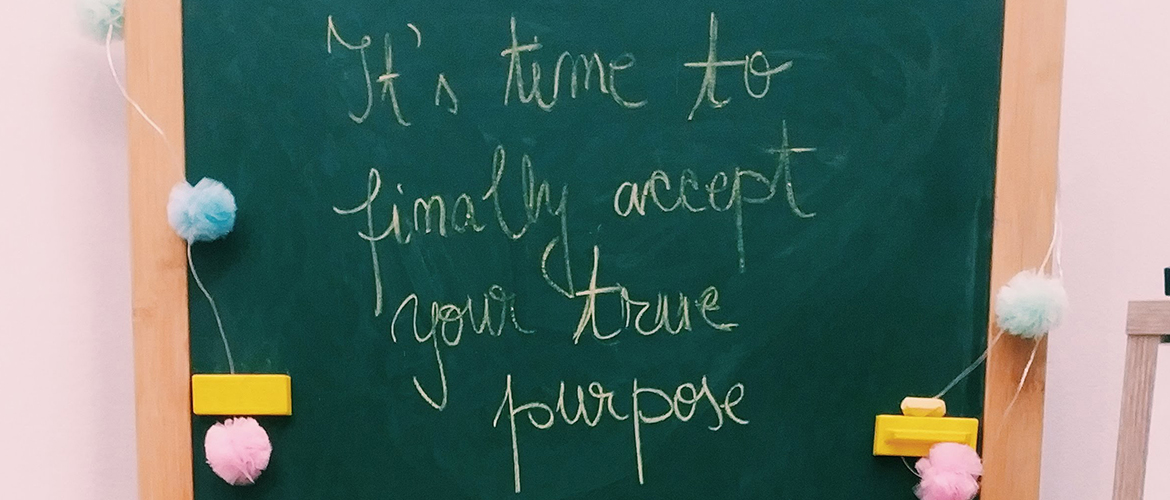 It's time to
finally accept
your true
purpose